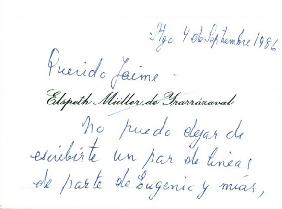 Stgo 4 de Septiembre 1986
Querido Jaime -
Elspeth Müller de Yrarrázaval
No puedo dejar de
escribirte un par de lineas
de parte de Eugenio y mías,